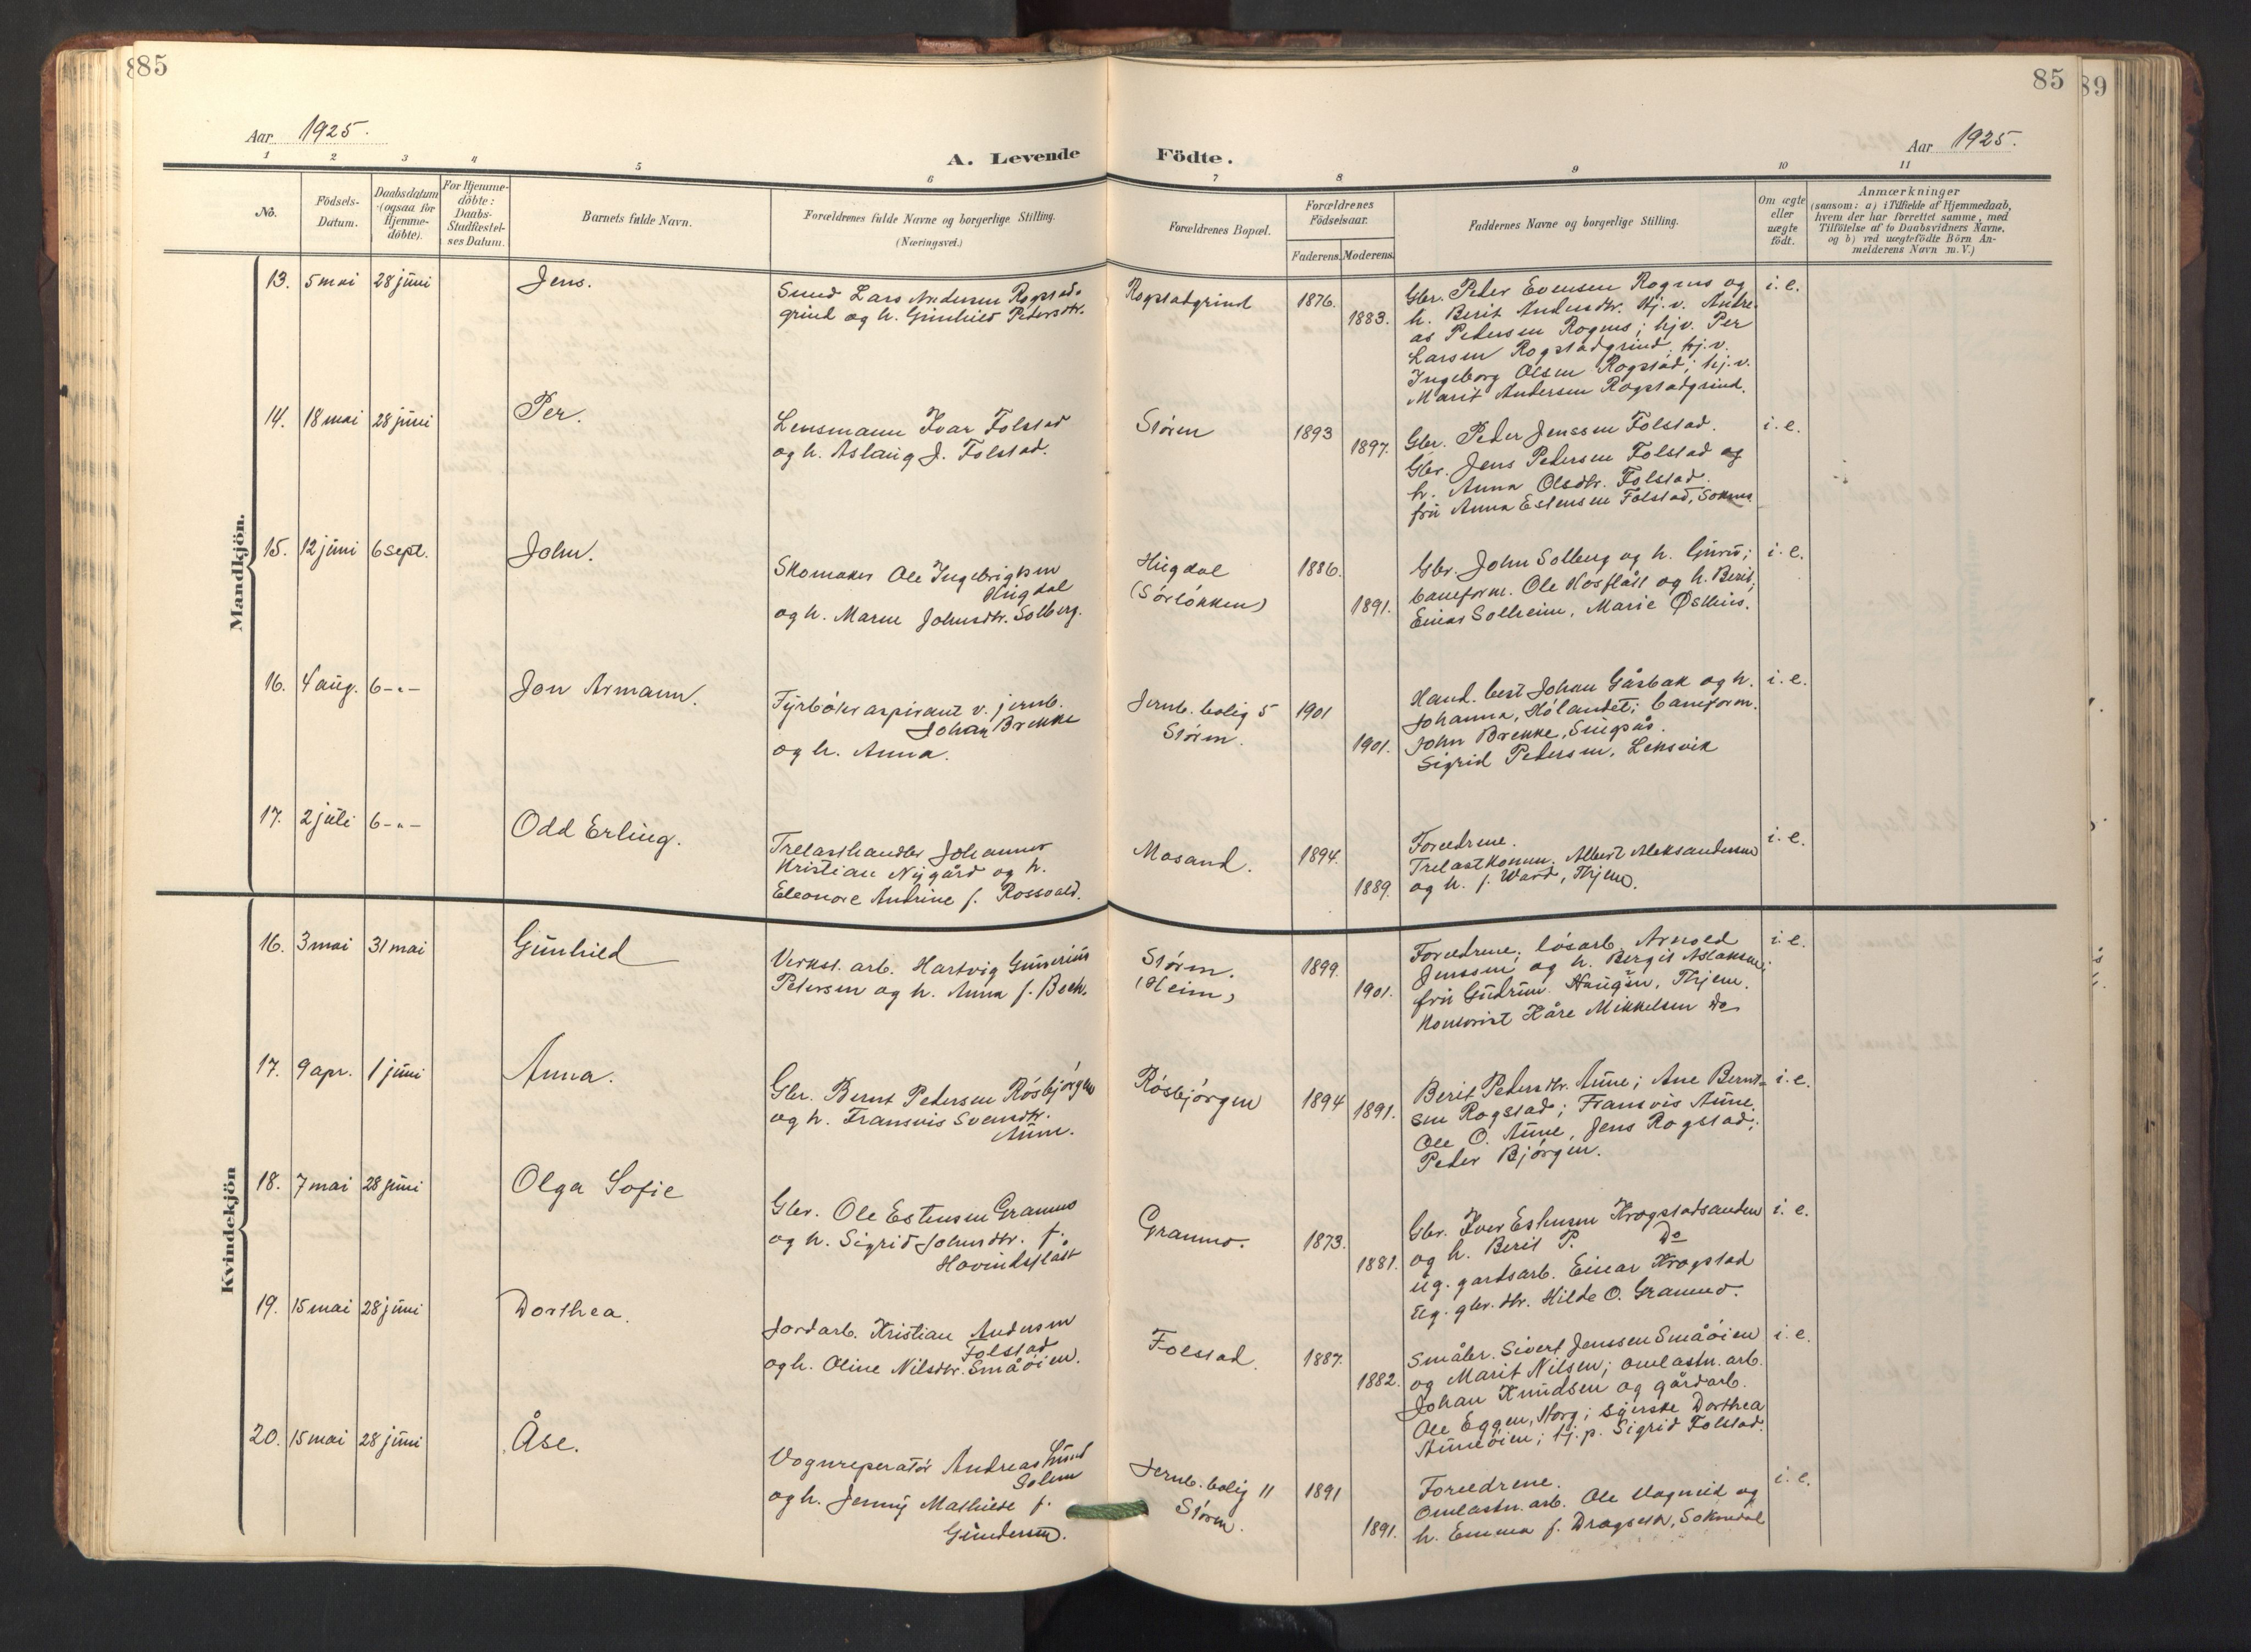 85
85
89
Aar 1925.
A. Levende Födte.
Aar 1925.
1 2 3 4 5 6 7 8 9 10 11
No.
Födsels-
Datum.
Daabsdatum
(ogsaa for
Hjemme-
döbte).
For Hjemme-
döbte:
Daabs-
Stadfæstel-
ses Datum.
Barnets fulde Navn.
Forældrenes fulde Navne og borgerlige Stilling.
(Næringsvei.)
Forældrenes Bopæl.
Forældrenes
Födselsaar.
Faderens. Moderens.
Faddernes Navne og borgerlige Stilling.
Om ægte
eller
uægte
födt.
Anmærkninger
(saasom: a) i Tilfælde af Hjemmedaab,
hvem der har forrettet samme, med
Tilföielse af to Daabsvidners Navne,
og b) ved uægtefödte Börn An-
melderens Navn m. V.)
Mandkjön.
13. 5 mai 28 juni Jens.
Smed Lars Andersen Rogstad-
grind og h. Gunhild Pedersdtr.
Rogstadgrind 1876. 1883.
Gbr. Peder Evensen Rognes og
h. Berit Andersdtr. Hj.v. Andre-
as Pedersen Rognes; hjv. Per
Larsen Rogstadgrind, hj.v.
Ingeborg Olsen Rogstad; hj.v.
Marit Andersen Rogstadgrind.
i. e.
14. 18 mai 28 juni Per.
Lensmann Ivar Folstad
og h. Aslaug J. Folstad.
Støren 1893 1897.
Gbr. Peder Jenssen Folstad.
Gbr. Jens Pedersen Folstad og
h. Anna Olsdtr. Folstad.
fru Anna Estensen Folstad, Sokned.
i. e.
15. 12 juni 6 sept. John.
Skomaker Ole Ingebrigtsen
Hugdal
og h. Maren Johnsdtr. Solberg.
Hugdal
(Sørløkken)
1886. 1891.
Gbr. John Solberg og h. Guru;
baneform. Ole Hosflått og h. Berit;
Einar Solheim, Marie Østhus.
i. e.
16. 4 aug. 6 -"- Jon Armann.
Fyrbøteraspirant v. jernb.
Johan Brekke
og h. Anna.
Jernb. bolig 5
Støren.
1901 1901.
Hand. best Johan Gåsbak og h.
Johanna, Hølandet; baneform.
John Brekke, Singsås.
Sigrid Pedersen, Leksvik
i. e.
17. 2 juli 6 -"- Odd Erling.
Trelasthandler Johannes
Kristian Nygård og h.
Eleonore Andrine f. Rossvald.
Mosand. 1894. 1889.
Foreldrene.
Trelastkomm. Albert Aleksandersen
og h. f. Ward, Thjem.
i. e.
Kvindekjön
16. 3 mai 31 mai Gunhild
Verkst. arb. Hartvig Gunerius
Petersen og h. Anna f. Bech.
Støren.
(Heim)
1899. 1901.
Foreldrene; løsarb. Arnold
Jenssen og h. Bergit Aslaksen;
fru Gudrun Haugan, Thjem.
Kontorist Kåre Mikkelsen Do
i. e.
17. 9 apr. 1 juni Anna.
Gbr. Bernt Petersen Røsbjørgen
og h. Fransvis Svendsdtr.
Aune.
Røsbjørgen 1894 1891.
Berit Pedersdtr. Aune; Ane Bernt-
sen Rogstad; Fransvis Aune.
Ole O. Aune, Jens Rogstad;
Peder Bjørgen.
i. e.
18. 7 mai 28 juni Olga Sofie
Gbr. Ole Estensen Gramno
og h. Sigrid Johnsdtr. f.
Hovindsflåt
Gramno. 1873. 1881.
Gbr. Iver Estensen Krogstadsanden
og h. Berit P. Do
ug. gardsarb. Einar Krogstad
ug. gbr. dtr. Hilde O. Gramno.
i. e.
19. 15 mai 28 juni Dorthea.
Jordarb. Kristian Andersen
Folstad
og h. Oline Nilsdtr. Småøien.
Folstad. 1887. 1882.
Småbr. Sivert Jenssen Småøien
og Marit Nilsen; omlastn. arb.
Johan Knudsen og gårdarb.
Ole Eggen, Horg; syerske Dorthea
Auneøien; tj.p. Sigrid Folstad.
i. e.
20. 15 mai 28 juni Åse.
Vognreperatør Andreas Lund
Solem
og h. Jenny Mathilde f.
Gundersen.
Jernb. bolig 11
Støren.
1891 1891.
Foreldrene.
Omlastn. arb. Ole Vagnild og
h. Emma f. Dragseth, Soknedal
i. e.